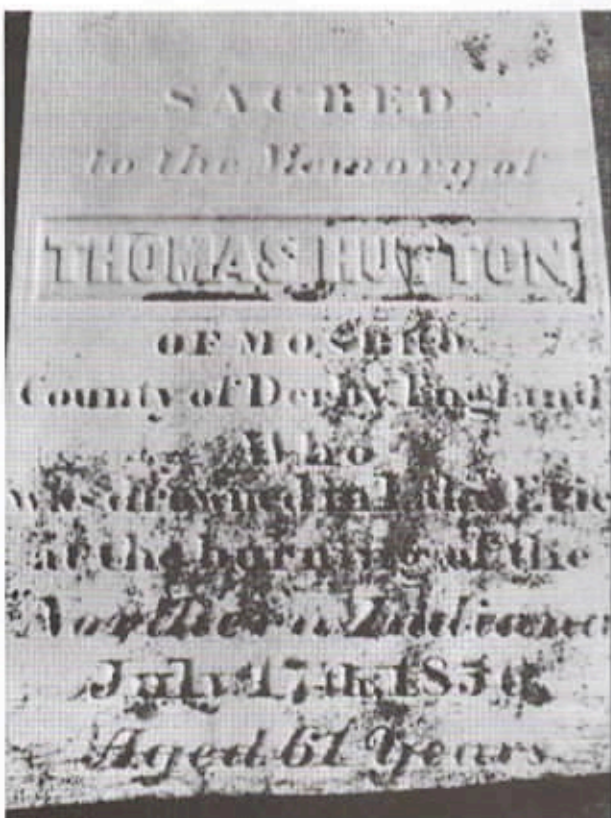 SACRED
to the Memory of
THOMAS HUTTON
OF MOSBRO
County of Derby, England
Who
was drowned in Lake Erie
at the burning of the
Northern Indiana
July 17th, 1856
Aged 61 Years